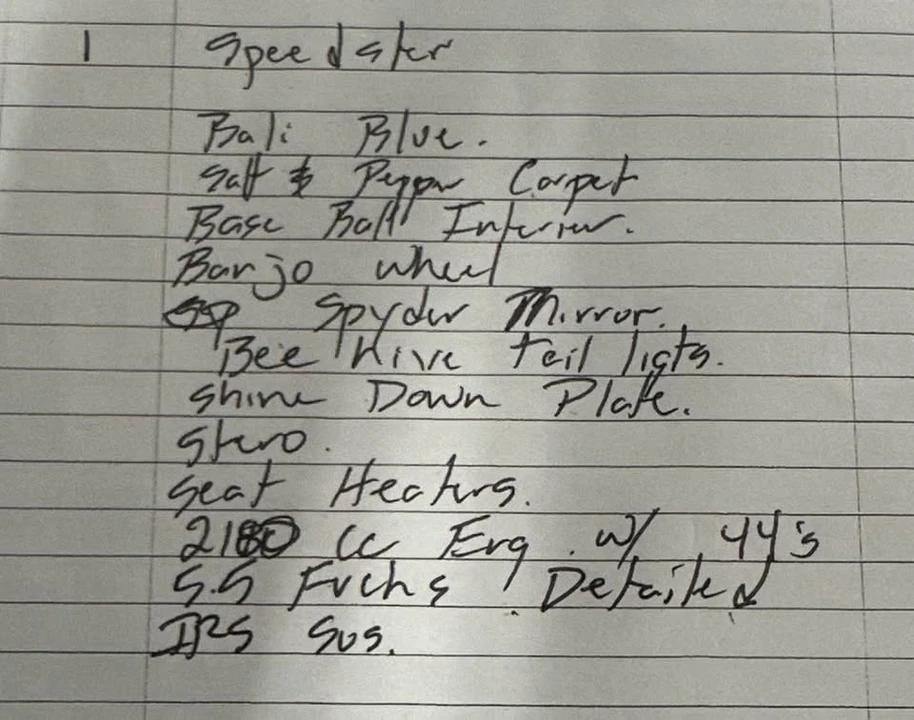 1 Speedster
Bali Blue.
Salt & Pepper Carpet
Base Ball Interior.
Banjo wheel
Spyder Mirror.
Bee Hive tail ligts.
Shine Down Plate.
Stero.
Seat Heaters.
2180 cc Eng. w/ 44's
5.5 Fuchs Detailed
IRS Sus.